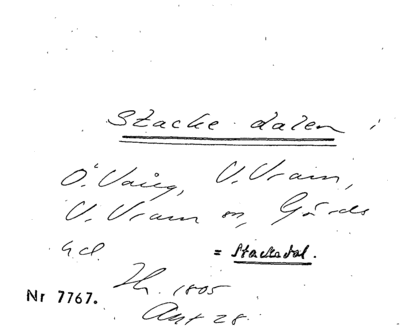 Stacke dalen
Ö. Vaig, V. Vram,
V. Vram sn, Gärds
hd. = Stacksdal.
Nr 7767. Th. 1805
Akt 28